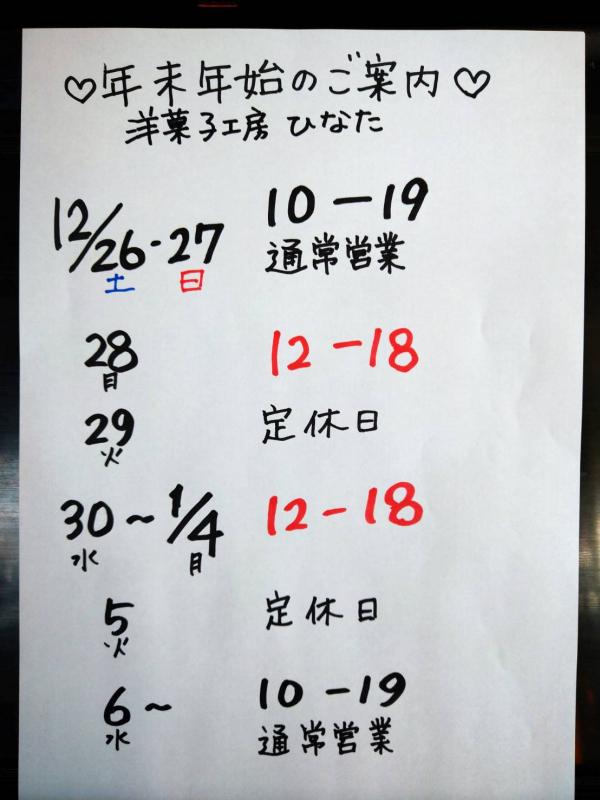 ♡年末年始のご案内♡
洋菓子工房 ひなた
12/26-27 10-19
土 日 通常営業
28 12-18
月
29 定休日
火
30~1/4 12-18
水 月
5 定休日
火
6~ 10-19
水 通常営業